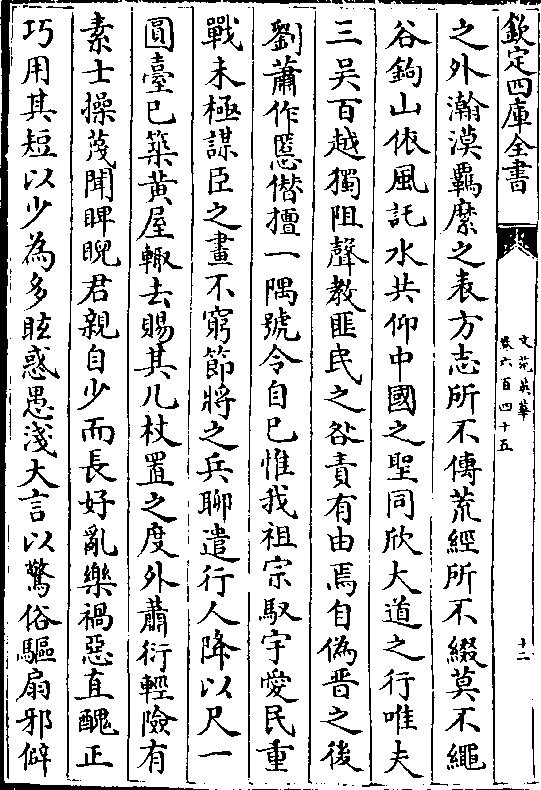 欽定四庫全書
文苑英華
卷六百四十五
十二
之外瀚漠羈縻之表方志所不傳荒經所不綴莫不繩
谷鉤山依風託水共仰中國之聖同欣大道之行唯夫
三吴百越獨阻聲教匪民之咎責有由焉自偽晋之後
劉蕭作慝僣擅一隅號令自已惟我祖宗馭宇愛民重
戰未極謀臣之畫不窮節將之兵聊遣行人降以尺一
圓臺已築黄屋輙去賜其几杖置之度外蕭衍輕險有
素士操蔑聞睥睨君親自少而長好亂樂禍惡直醜正
巧用其短以少為多眩惑愚淺大言以驚俗驅扇邪僻